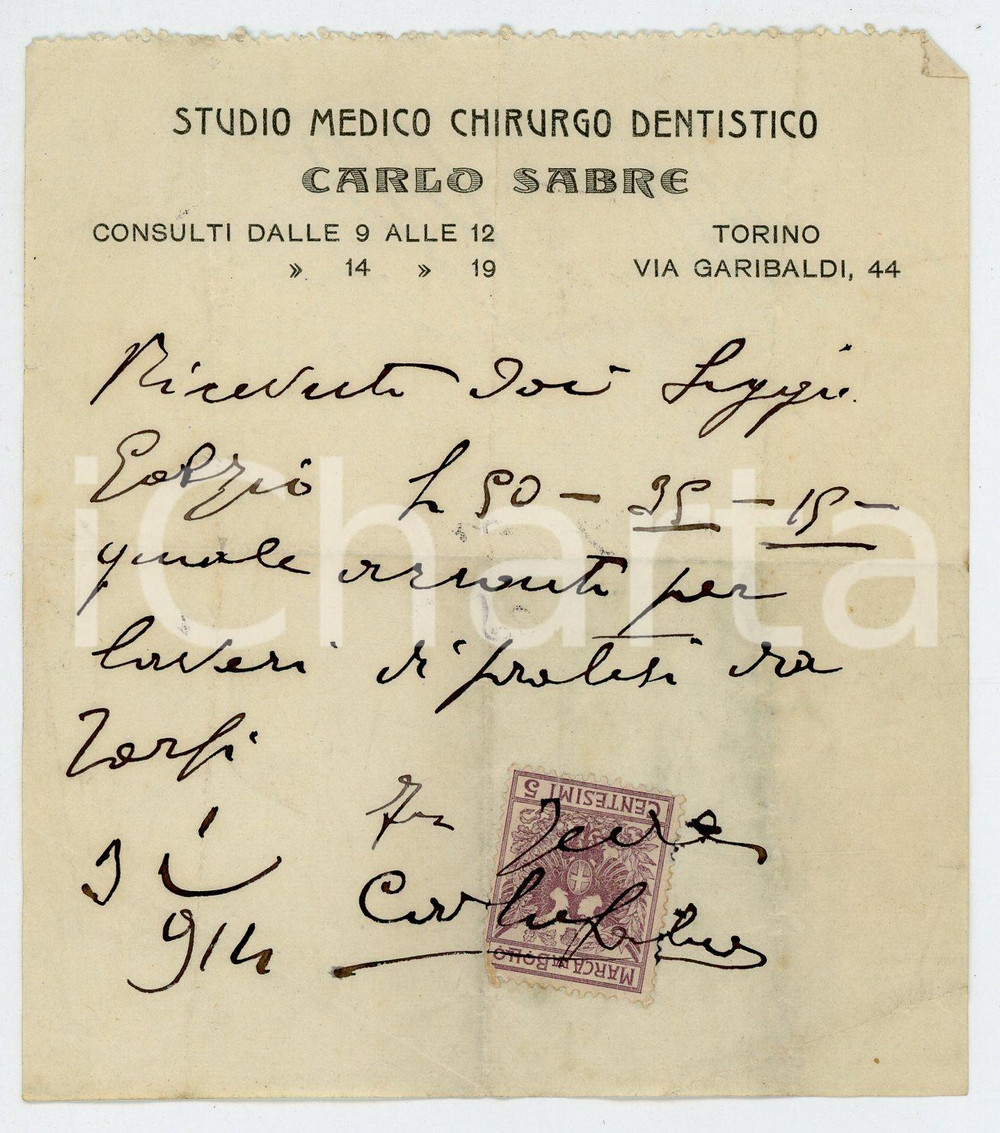 STUDIO MEDICO CHIRURGO DENTISTICO
CARLO SABRE
CONSULTI DALLE 9 ALLE 12
» 14 » 19
TORINO
VIA GARIBALDI, 44
Ricevuto
L 50 - 35 - 15 -
quale acconto per
lavori di protesi da
farsi
In fede
Carlo Sabre
3
914
CENTESIMI 5
MARCA DA BOLLO
iCharta